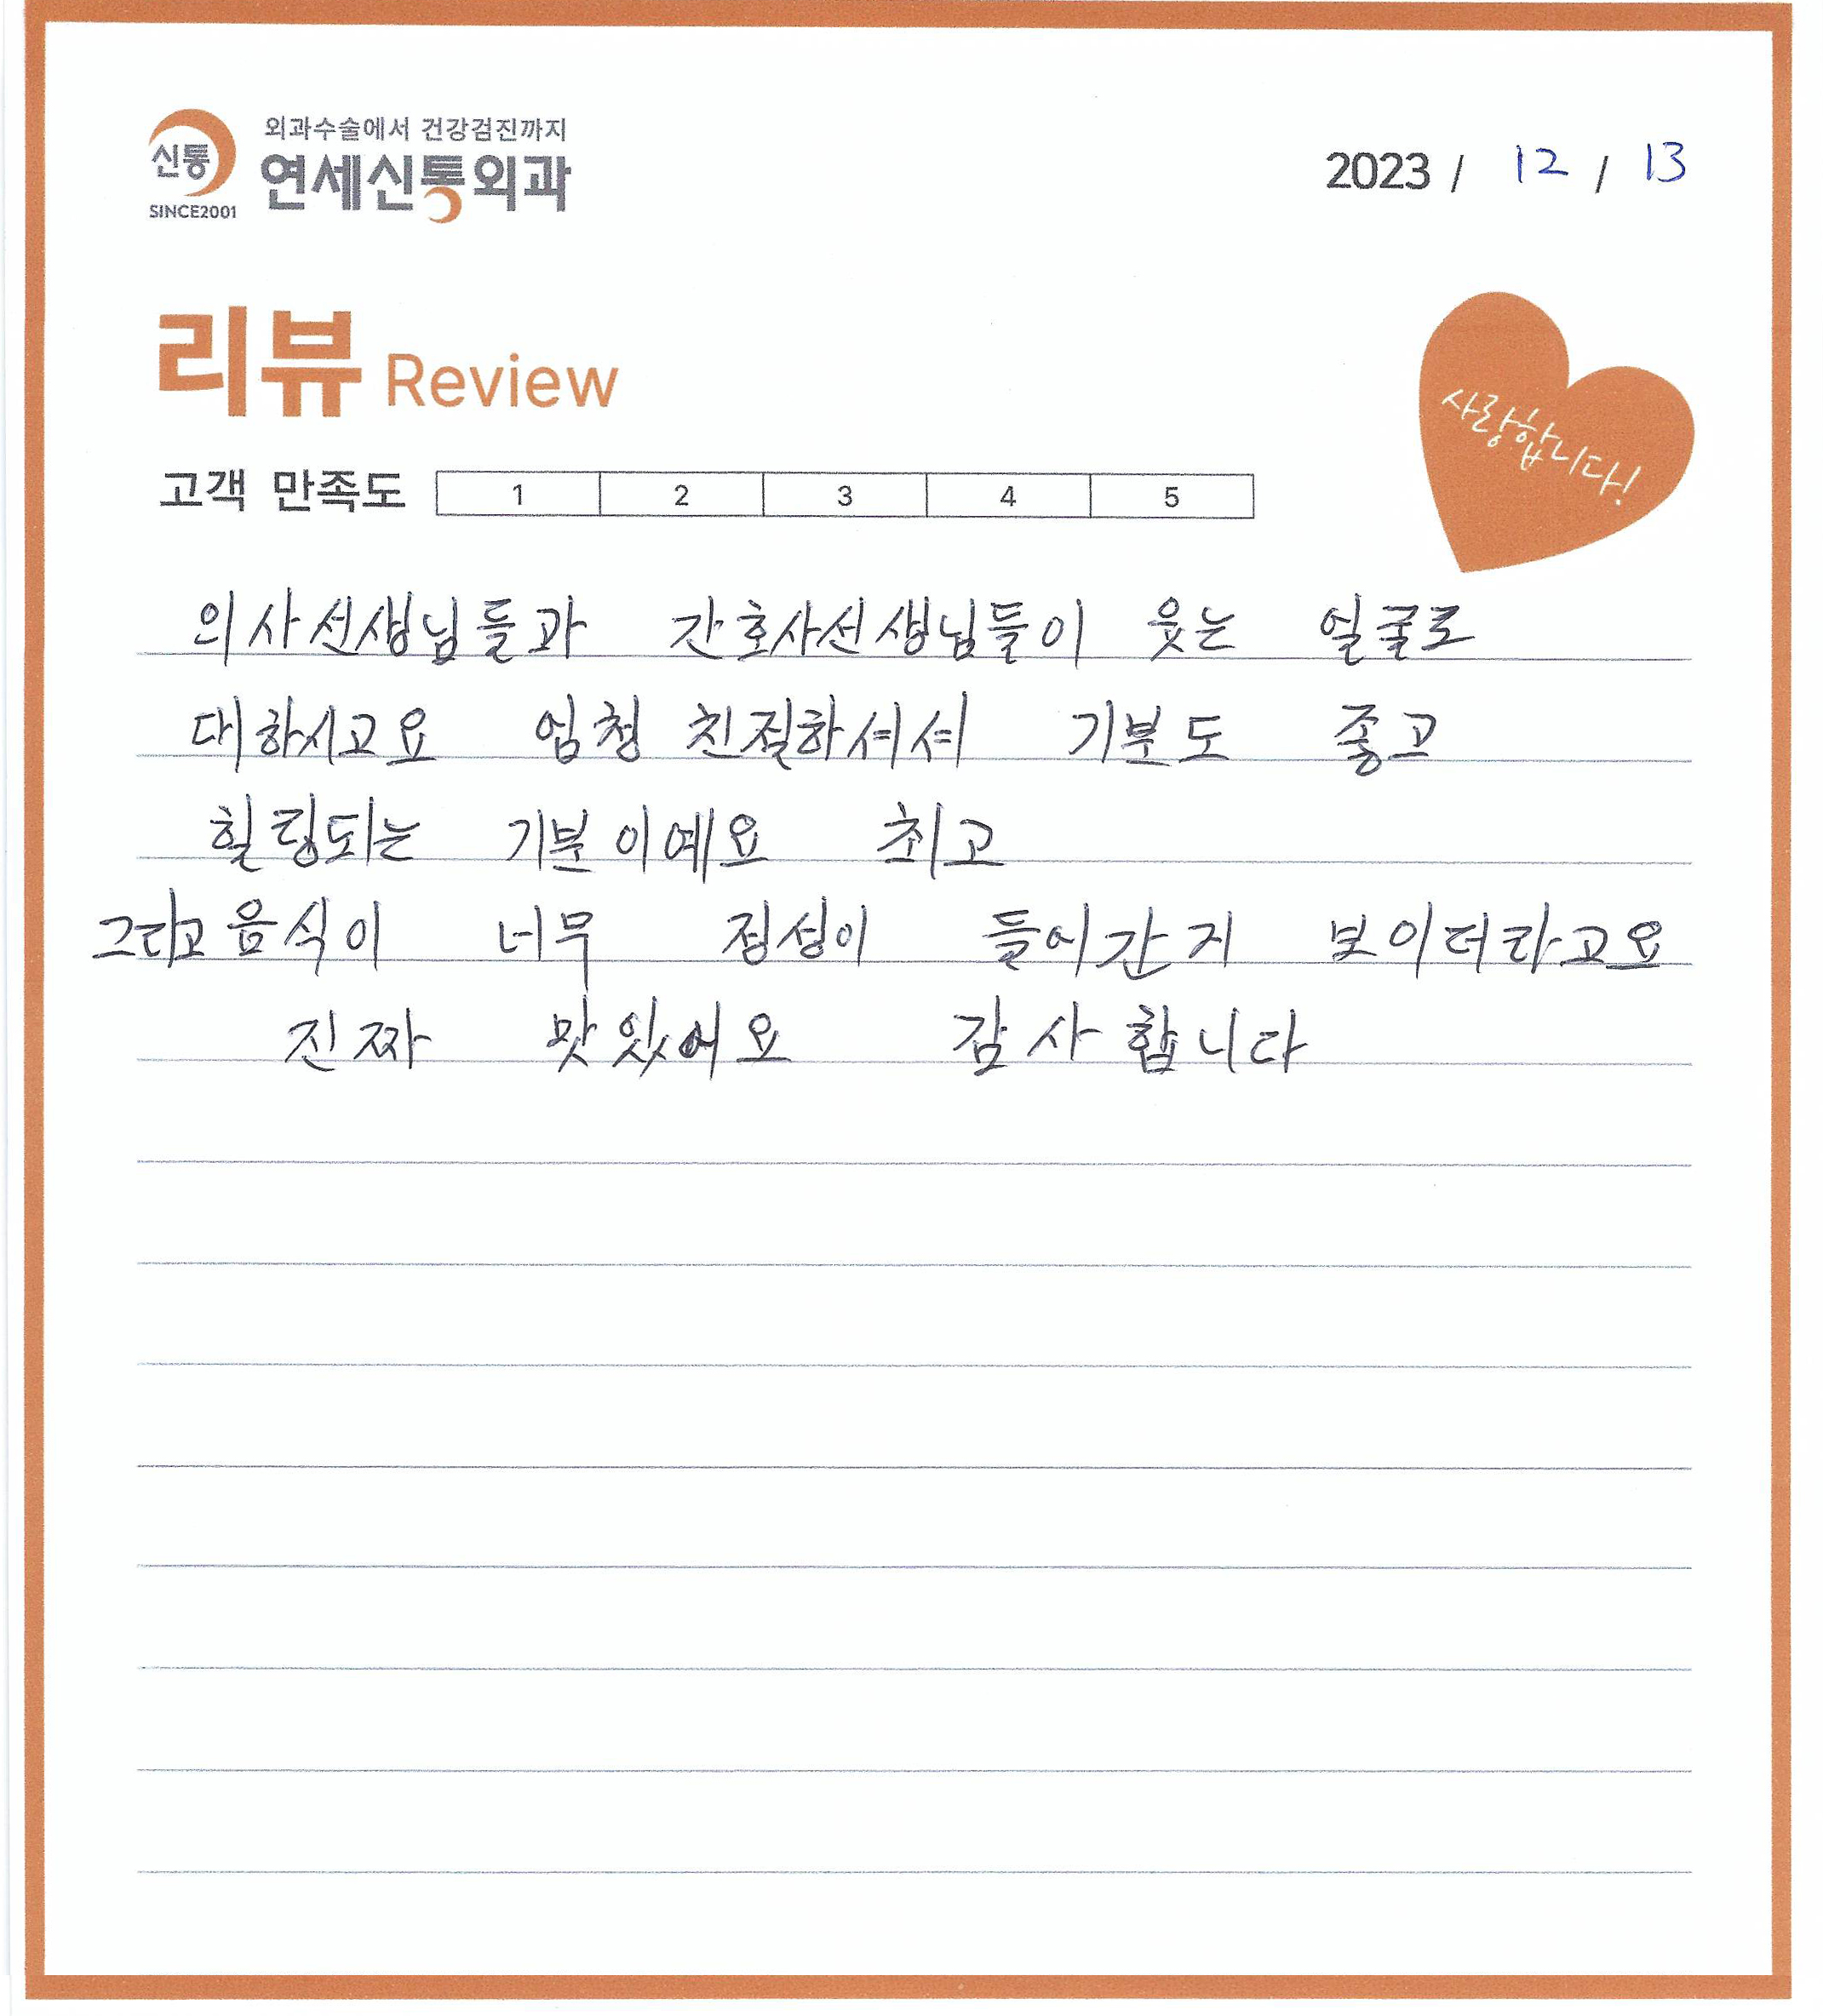 신통
SINCE2001
외과수술에서 건강검진까지
연세신통외과
2023 / 12 / 13
리뷰 Review
사랑합니다!
고객 만족도 1 2 3 4 5
의사선생님들과 간호사선생님들이 웃는 얼굴로
대하시고요 엄청 친절하셔셔 기분도 좋고
힐링되는 기분이예요 최고
그리고 음식이 너무 정성이 들어간지 보이더라고요
진짜 맛있어요 감사합니다